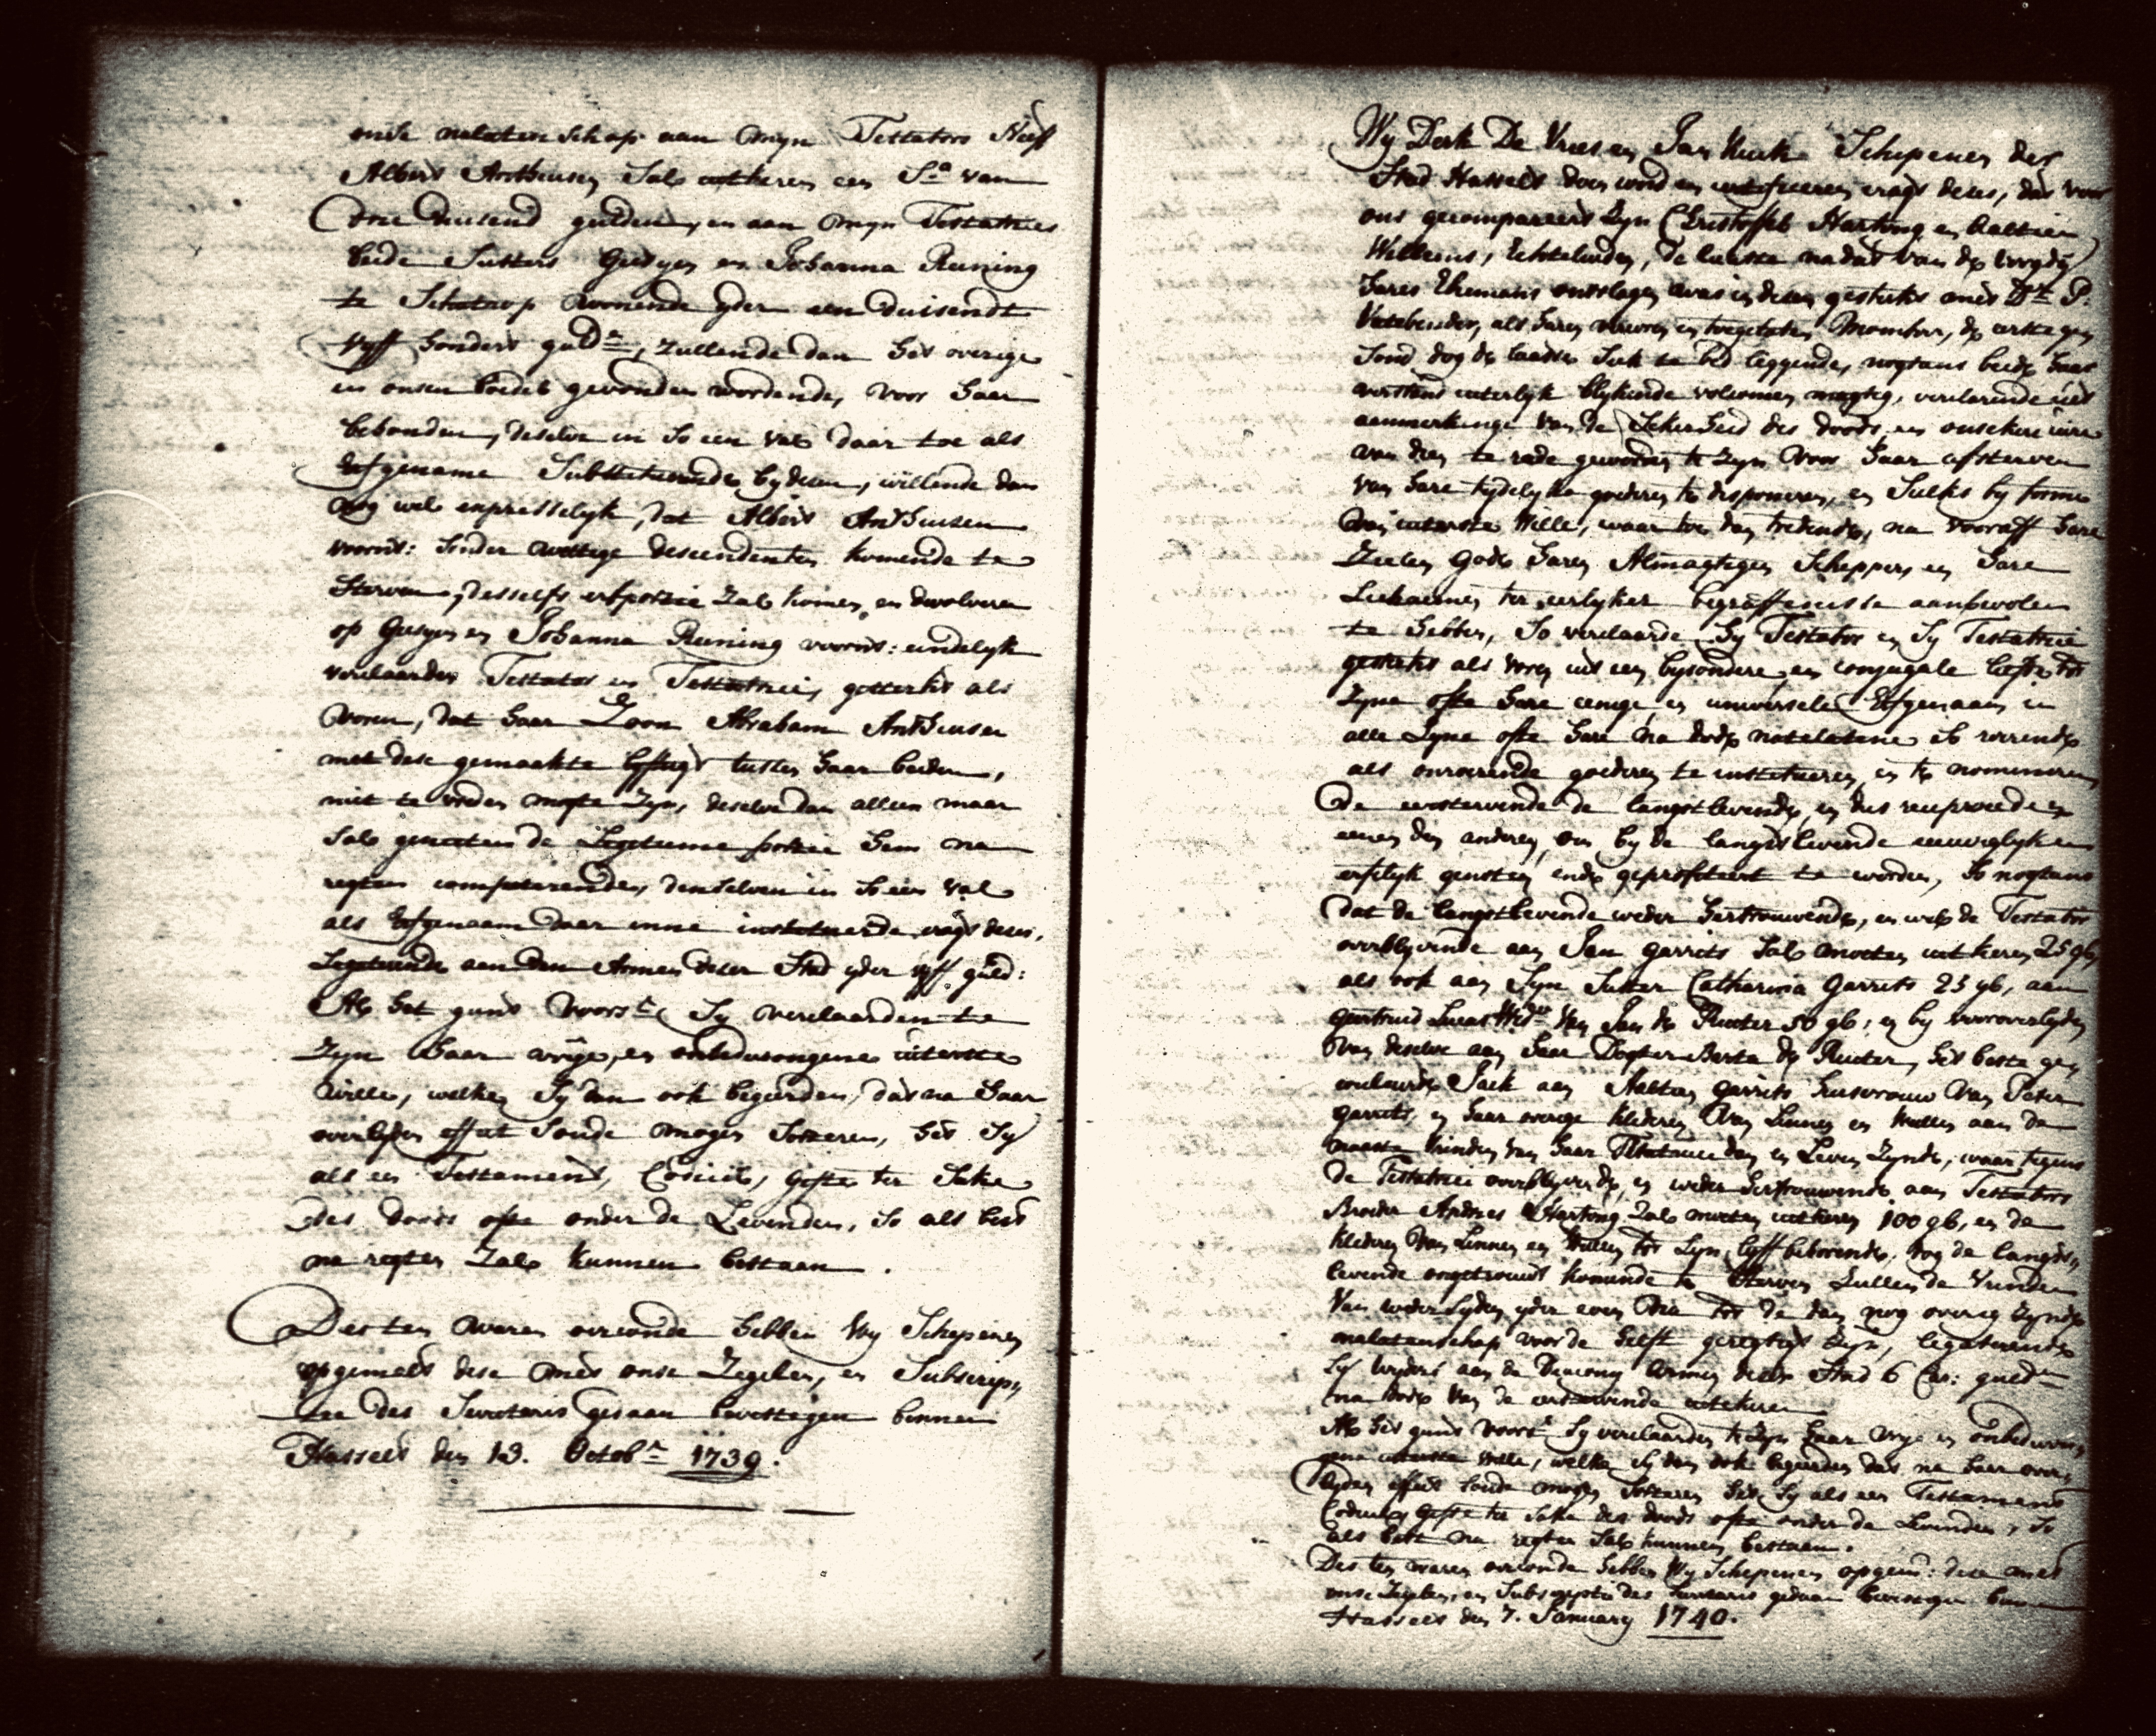 onse nalatenschap aan mijn Testators Neef
Albert Anthuisen Sal uitkeren een Sa. van
drie duisend gulden, en aan mijn Testatrices
beide Susters Geesjen en Johanna Runing
te Schetrop woonende yder een duisendt
vyff hondert guldn, zullende dan het overige
in onsen boedel gevonden wordende, voor haar
behouden, deselve in so een val daar toe als
Erfgename Substitueerende bij desen, willende dan
nog wel expresselyk, dat Albert Anthuisen
voorns: sonder wettige descendenten komende te
Sterven, desselfs erfportie zal komen en devolveren
op Geesjen en Johanna Runing voorns: eindelyk
verclaarden Testator en Testatrice, gesterkt als
voren, dat haar Zoon Abraham Anthuisen
met dese gemaakte lyftugt tussen haar beiden,
niet te vreden mogte zyn, deselve dan alleen maar
Sal genieten de Legitieme portie hem na
regten competerende, denselven in so een val
als Erfgenaam daar inne instituerende cragt deses,
Legaterende aan den Armen deser Stad yder vyff guld:
Al het gunt voorst. Sy verclaarden te
zyn haar vrije, en onbedwongene uiterste
wille, welke Sy dan ook begeerden, dat na haar
overlyden effect Soude mogen Sorteren, het Sy
als een Testament, Codicil, Gifte ter Sake
des doods ofte onder de Levenden, so als best
na regten Zal kunnen bestaan.
Des ten waren oirconde hebben Wy Schepenen
opgemelt dese met onse Zegelen, en Subscrip,,
tie des Secretaris gedaan bevestigen binnen
Hasselt den 13. Octobr. 1739.
Wy Derk De Vries en Jan Kuik Schepenen der
Stad Hasselt doen cond en certificeren cragt deses, dat voor
ons gecompareert zyn Christoffel Hartong en Aaltien
Willems, Echtelieden, de laaste nadat van de voogdy
hares Ehemans ontslagen was in desen gesterkt met Dr. P.
als haren vercoren en toegelaten Momber, de eerste gesond
dog de laaste Siek te bed leggende, nogtans beide haar
verstand uiterlyk blykende volcomen magtig, verclarende uit
aanmerkinge van de Sekerheid des doods en onsekere uire
van dien te rade geworden te zyn voor haar afsterven
van hare tydelyke goederen te disponeren, en Sulks by forme
van uiterste Wille, waar toe dan tredende, na vooraff hare
Zielen Gode haren Almagtigen Schepper, en hare
Lichamen ter eerlyker begraffenisse aanbevolen
te hebben, So verclaarde Hy Testator en Sy Testatrice
gesterkt als voren uit een bysondere en conjugale liefde tot
Zyne ofte hare eenige en universele Erfgenaam in
alle Zyne ofte hare na dode natelatene so roerende
als onroerende goederen te institueren, en te nomineren
De eerststervende de langstlevende, en dus reciproce de
eenen den anderen, om by de langstlevende eeuwiglyk en
erfelyk genoten ende geprofiteert te worden, So nogtans
dat de langstlevende weder hertrouwende, en wel de Testator
overblyvende aan Jan Garrits Sal moeten uitkeren 25 gl,
als ook aan Syn Suster Catharina Garrits 25 gl, aan
Geertruid Lucas Wede. van Jan de Ruiter 50 gl; en by vooroverlyden
van deselve aan haar Dogter Berta de Ruiter, het beste ge,,
couleurde Jack aan Aaltien Garrits huisvrouw van Peter
Garrits, en haar overige klederen van Linnen en Wullen aan de
naaste vrinden van haar Testatrice dan in Leven zynde, waar tegens
de Testatrice overblyvende, en weder hertrouwende aan Testators
Broeder Andries Hartong Zal moeten uitkeren 100 gl, en de
klederen van Linnen en Wullen tot Zyn lyff behorende, dog de langst,,
levende ongetrouwt komende te sterven Zullen de Vrinden
van weder Syden yder even na tot de dan nog overig zynde
nalatenschap voor de helft geregtigt zyn, legaterende
Sy wyders aan de Diacony Armen deser Stad 6 Car: guldn.
na dode van de eerststervende uittekeren
Al het gunt voorst. Sy verclaarden te zyn haar vrye en onbedwon,,
gene uiterste Wille, welke Sy dan ook begeerden dat na haar over,,
lyden effect Soude mogen Sorteren het Sy als een Testament
Codicil, Gifte ter Sake des doods ofte onder de Levenden, So
als best na regten Sal kunnen bestaan.
Des ten waren oirconde hebben Wy Schepenen opgem: dese met
onse Zegelen, en Subscriptie des Secretaris gedaan bevestigen binnen
Hasselt den 7. January 1740.